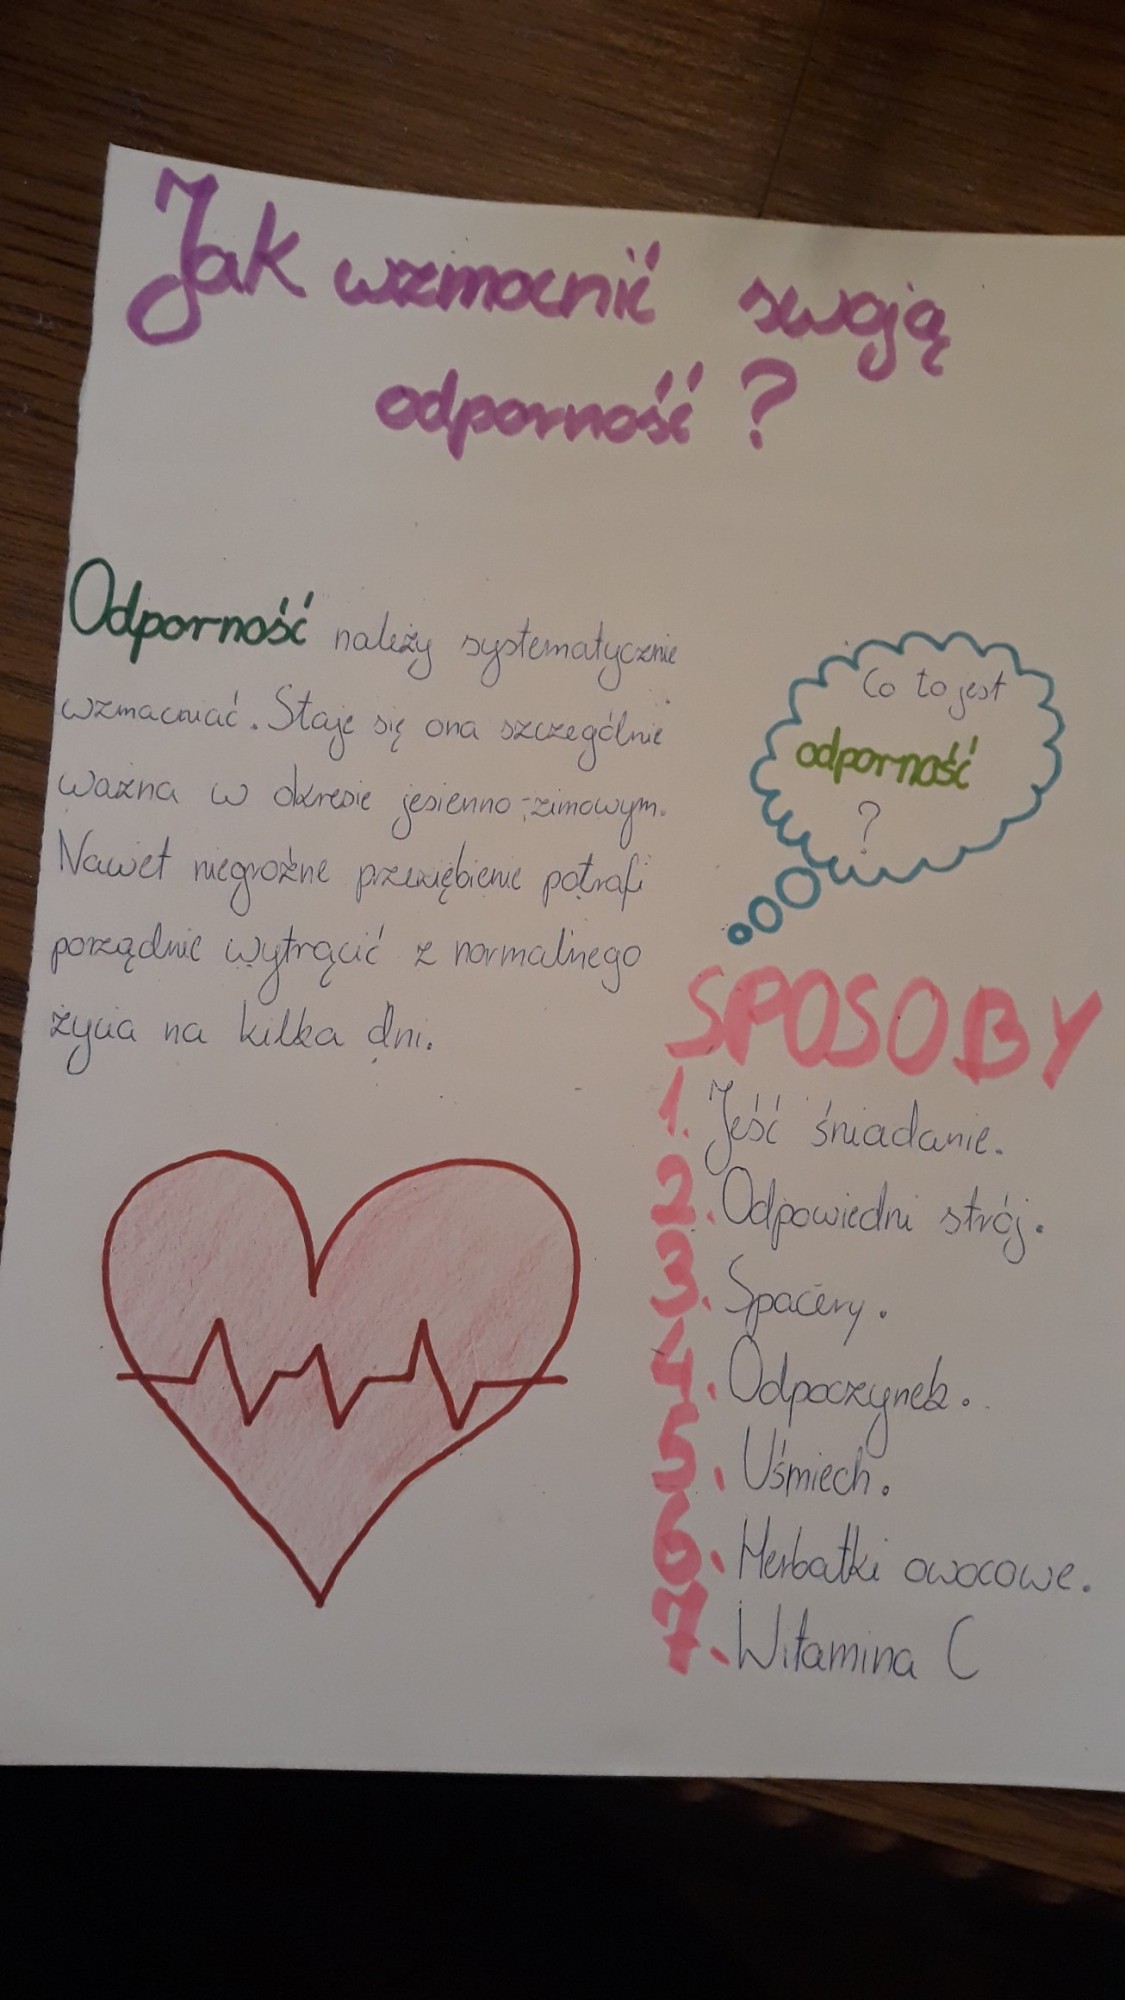 Jak wzmocnić swoją
odporność?
Odporność należy systematycznie
wzmacniać. Staje się ona szczególnie
ważna w okresie jesienno-zimowym.
Nawet niegroźne przeziębienie potrafi
porządnie wytrącić z normalnego
życia na kilka dni.
Co to jest
odporność
?
SPOSOBY
1. Jeść śniadanie.
2. Odpowiedni strój.
3. Spacery.
4. Odpoczynek.
5. Uśmiech.
6. Herbatki owocowe.
7. Witamina C